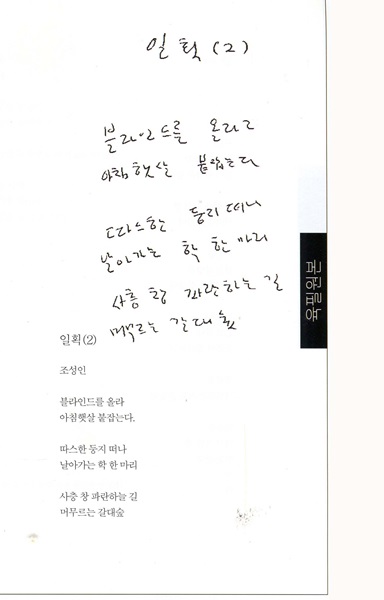 일획(2)
블라인드를 올리고
아침햇살 붙잡는다
따스한 둥지 떠나
날아가는 학 한 마리
사층 창 파란하늘 길
머무르는 갈대숲
육필원본
일획(2)
조성인
블라인드를 올라
아침햇살 붙잡는다.
따스한 둥지 떠나
날아가는 학 한 마리
사층 창 파란하늘 길
머무르는 갈대숲